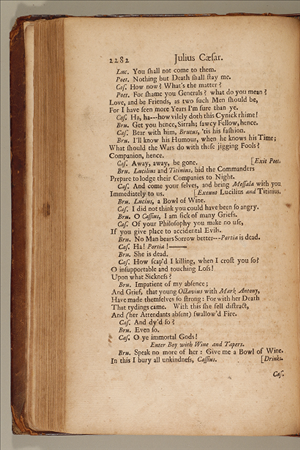 2282 Julius Cæsar.
Luc. You shall not come to them.
Poet. Nothing but Death shall stay me.
Cas. How now? What's the matter?
Poet. For shame you Generals? what do you mean?
Love, and be Friends, as two such Men should be,
For I have seen more Years I'm sure than ye.
Cas. Ha, ha---how vilely doth this Cynick rhime!
Bru. Get you hence, Sirrah; sawcy Fellow, hence.
Cas. Bear with him, Brutus, 'tis his fashion.
Bru. I'll know his Humour, when he knows his Time;
What should the Wars do with these jigging Fools?
Companion, hence.
Cas. Away, away, be gone. [Exit Poet.
Bru. Lucilius and Titinius, bid the Commanders
Prepare to lodge their Companies to Night.
Cas. And come your selves, and bring Messala with you
Immediately to us. [Exeunt Lucilius and Titinius.
Bru. Lucius, a Bowl of Wine.
Cas. I did not think you could have been so angry.
Bru. O Cassius, I am sick of many Griefs.
Cas. Of your Philosophy you make no use,
If you give place to accidental Evils.
Bru. No Man bears Sorrow better---Portia is dead.
Cas. Ha! Portia!———
Bru. She is dead.
Cas. How scap'd I killing, when I crost you so?
O insupportable and touching Loss!
Upon what Sickness?
Bru. Impatient of my absence;
And Grief, that young Octavius with Mark Antony,
Have made themselves so strong: For with her Death
That tydings came. With this she fell distract,
And (her Attendants absent) swallow'd Fire.
Cas. And dy'd so?
Bru. Even so.
Cas. O ye immortal Gods!
Enter Boy with Wine and Tapers.
Bru. Speak no more of her: Give me a Bowl of Wine.
In this I bury all unkindness, Cassius. [Drinks.
Cas.